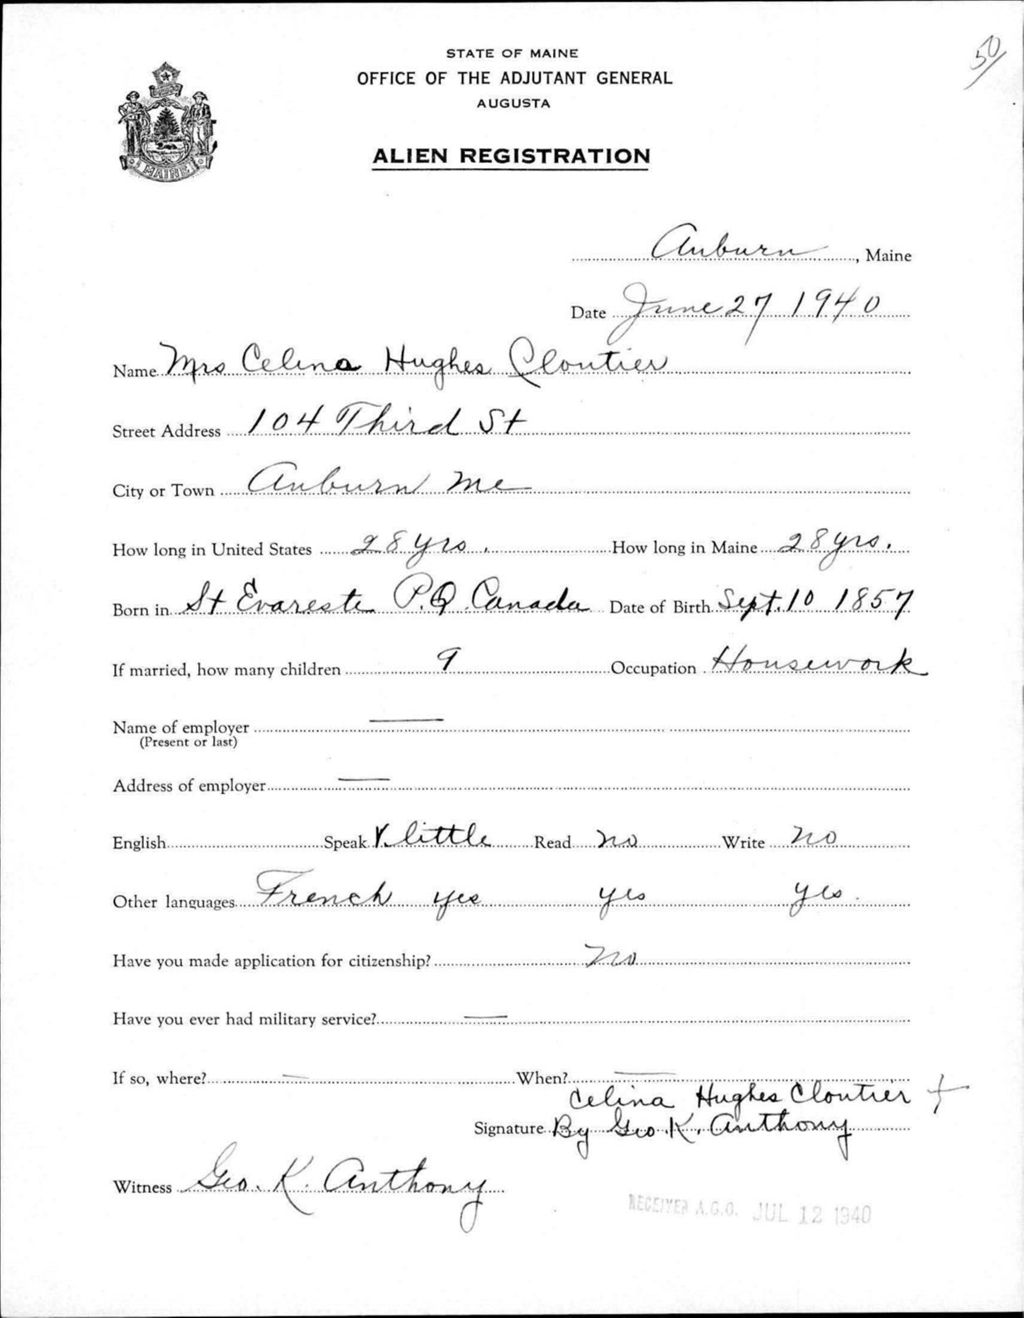 50
STATE OF MAINE
OFFICE OF THE ADJUTANT GENERAL
AUGUSTA
MAINE
ALIEN REGISTRATION
Auburn, Maine
Date June 27 1940
Name Mrs Celina Hughes Cloutier
Street Address 104 Third St
City or Town Auburn Me
How long in United States 28 yrs. How long in Maine 28 yrs.
Born in St Evareste P.Q. Canada Date of Birth Sept. 10 1857
If married, how many children 9 Occupation Housework
Name of employer
(Present or last)
Address of employer
English Speak little Read no Write no
Other languages French yes yes yes.
Have you made application for citizenship? no
Have you ever had military service?
If so, where? When?
Celina Hughes Cloutier +
Signature By Geo. K. Anthony
Witness Geo. K. Anthony
RECEIVED A.G.O. JUL 12 1940